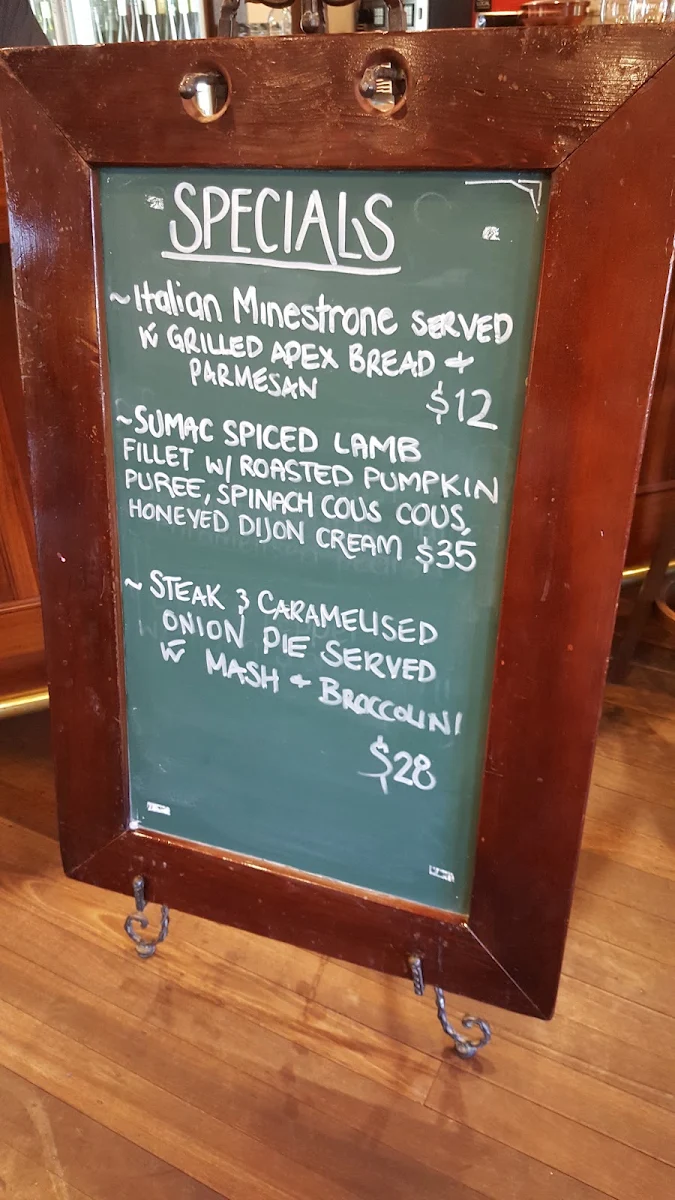 SPECIALS
~Italian Minestrone SERVED
w GRILLED APEX BREAD +
PARMESAN $12
~SUMAC SPICED LAMB
FILLET W/ ROASTED PUMPKIN
PUREE, SPINACH COUS COUS,
HONEYED DIJON CREAM $35
~ STEAK & CARAMELISED
ONION PIE SERVED
w MASH + BROCCOLINI
$28